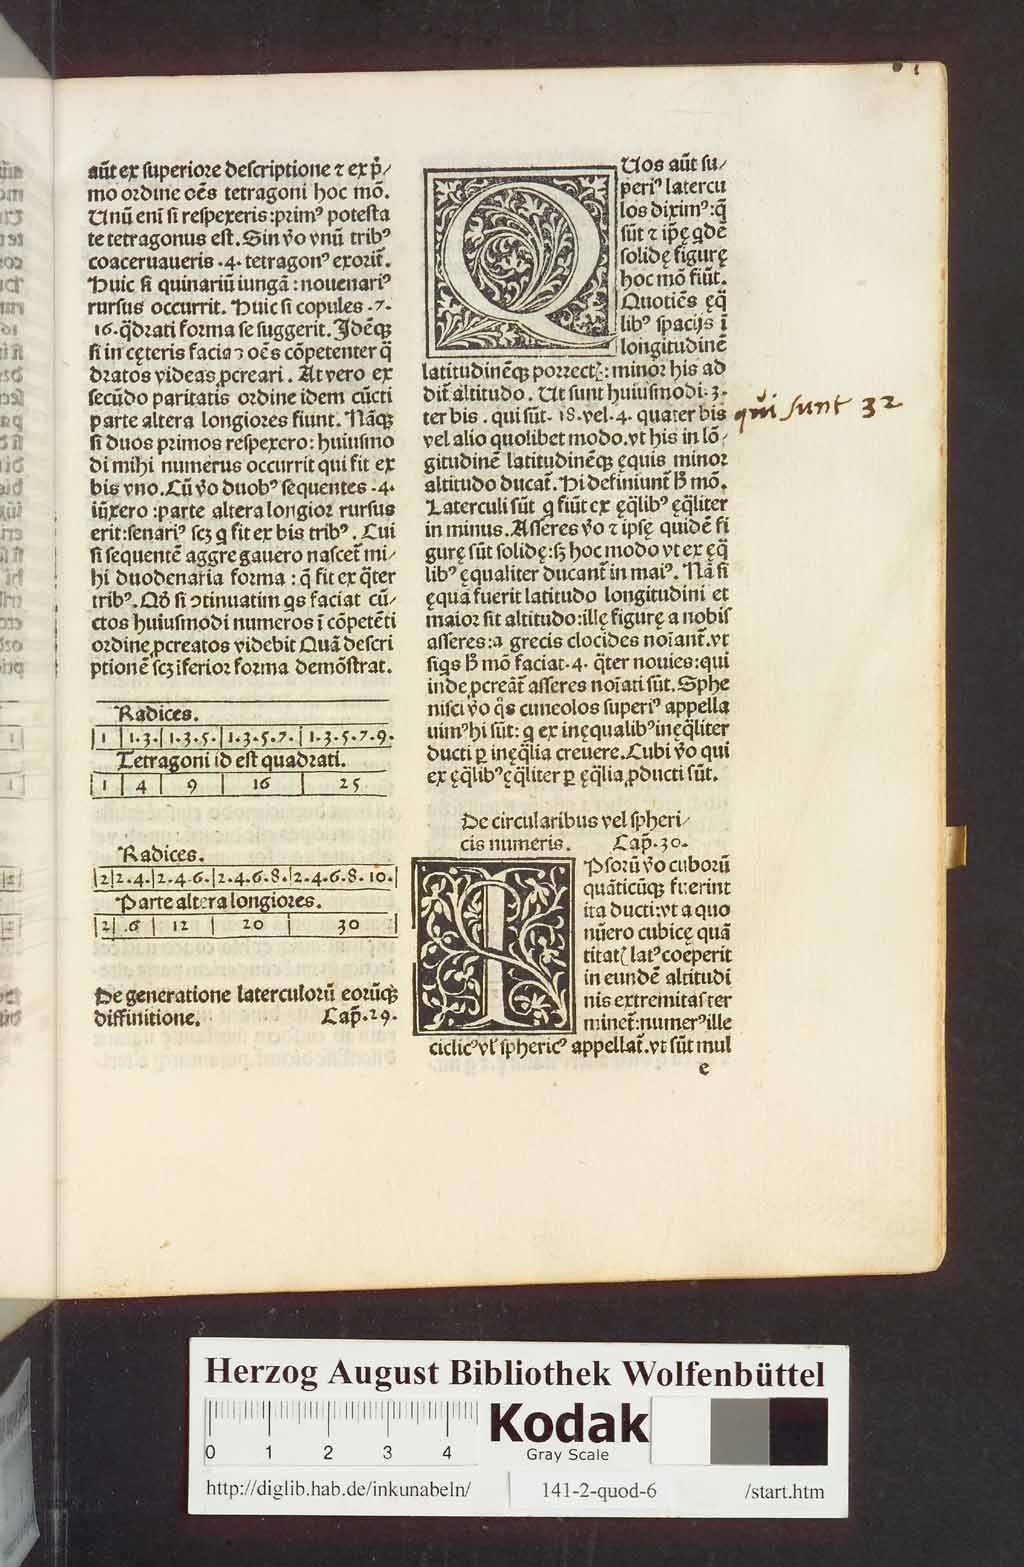 aūt ex superiore descriptione ⁊ ex p̄/
mo ordine oēs tetragoni hoc mō.
Unū enī si respexeris:primꝰ potesta
te tetragonus est. Sin v̊o vnū tribꝰ
coaceruaueris .4. tetragonꝰ exorit̄.
Huic si quinariū iungā : nouenariꝰ
rursus occurrit. Huic si copules .7.
16. q̄drati forma se suggerit. Idēqꝫ
si in cęteris facia⁊ oēs cōpetenter q̄
dratos videas ꝓcreari. At vero ex
secūdo paritatis ordine idem cūcti
parte altera longiores fiunt. Nāqꝫ
si duos primos respexero: huiusmo
di mihi numerus occurrit qui fit ex
bis vno. Cū v̊o duobꝰ sequentes .4.
iūxero :parte altera longior rursus
erit:senariꝰ scꝫ q fit ex bis tribꝰ. Cui
si sequentē aggregauero nascet̄ mi/
hi duodenaria forma : q̄ fit ex q̄ter
tribꝰ. Qđ si ↄtinuatim qs faciat cū/
ctos huiusmodi numeros ī cōpetēti
ordine ꝓcreatos videbit Quā descri
ptionē scꝫ iferior forma demōstrat.
Radices.
1 | 1.3. | 1.3.5. | 1.3.5.7. | 1.3.5.7.9.
Tetragoni id est quadrati.
1 | 4 | 9 | 16 | 25
Radices.
2 | 2.4. | 2.4.6. | 2.4.6.8. | 2.4.6.8.10.
Parte altera longiores.
2 | .6 | 12 | 20 | 30
De generatione laterculorū eorūqꝫ
diffinitione. Cap̄.29.
QUos aūt su/
periꝰ latercu
los diximꝰ:q̄
sūt ⁊ ip̄ę qdē
solidę figurę
hoc mō fiūt.
Quotiēs ęq̄
libꝰ spacijs ī
longitudinē
latitudinēqꝫ porrect: minor his ad
dit̄ altitudo. Ut sunt huiusmodi.3.
ter bis . qui sūt. 18. vel .4. quater bis
qui sunt 32
vel alio quolibet modo.vt his in lō/
gitudinē latitudinēqꝫ ęquis minor
altitudo ducat̄. Hi definiunt̄ h̄ mō.
Laterculi sūt q fiūt ex ęq̄libꝰ ęq̄liter
in minus. Asseres v̊o ⁊ ipsę quidē fi
gurę sūt solidę:sꝫ hoc modo vt ex ęq̄
libꝰ ęqualiter ducant̄ in maiꝰ. Nā si
ęqua fuerit latitudo longitudini et
maior sit altitudo:illę figurę a nobis
asseres:a grecis clocides noīant̄.vt
siqs h̄ mō faciat .4. q̄ter nouies:qui
inde ꝓcreāt̄ asseres noīati sūt. Sphe
nisci v̊o q̊s cuneolos superiꝰ appella
uimꝰ hi sūt: q ex inęqualibꝰ inęq̄liter
ducti ꝑ inęq̄lia creuere. Cubi v̊o qui
ex ęq̄libꝰ ęq̄liter ꝑ ęq̄lia ꝓducti sūt.
De circularibus vel spheri/
cis numeris. Cap̄.30.
IPsorū v̊o cuborū
quāticūqꝫ fuerint
ita ducti:vt a quo
nūero cubicę quā
titat latꝰ coeperit
in eundē altitudi
nis extremitas ter
minet̄:numerꝰ ille
ciclicꝰ vl̄ sphericꝰ appellat̄. vt sūt mul
e
Herzog August Bibliothek Wolfenbüttel
0 1 2 3 4
Kodak
Gray Scale
http://diglib.hab.de/inkunabeln/ 141-2-quod-6 /start.htm